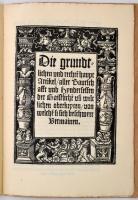 Die grundt-
lichen vnd rechte haupt
Artikel/ aller Baurſch
afft vnd Hynderſeſſen
der Gaiſtliche vñ welt-
lichen oberkayten/ von
welchē ſy ſich beſchwert
Vermainen.